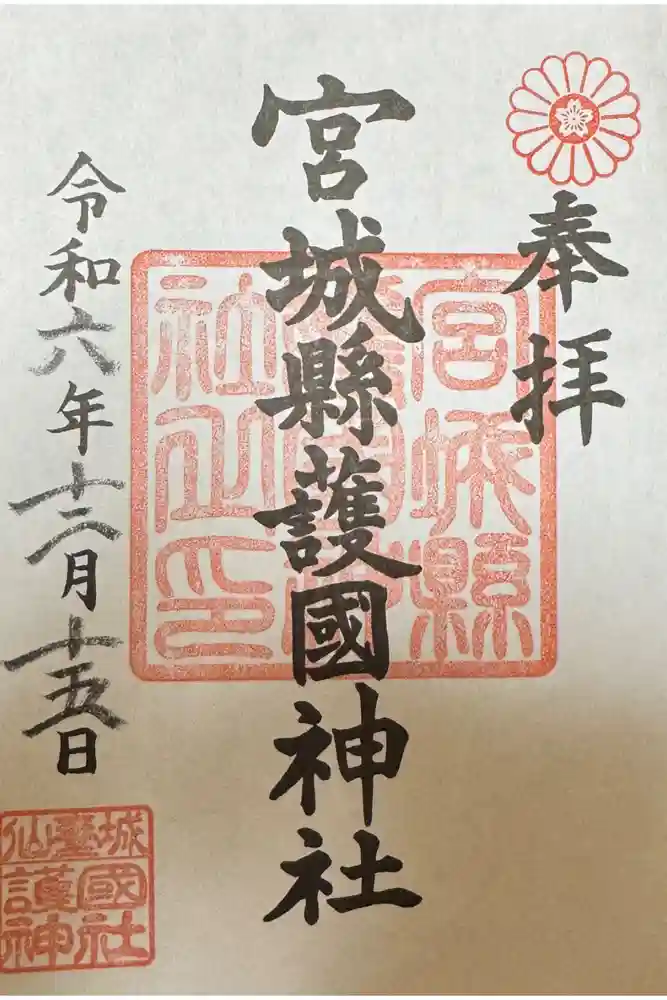 奉拝
宮城縣護國神社
令和六年十二月十五日
宮城縣
護國神
社之印
仙臺城
護國
神社